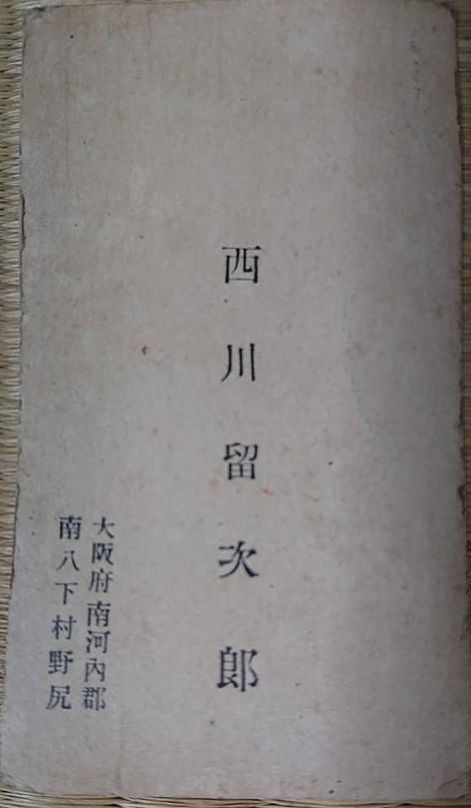 西川留次郎
大阪府南河内郡
南八下村野尻